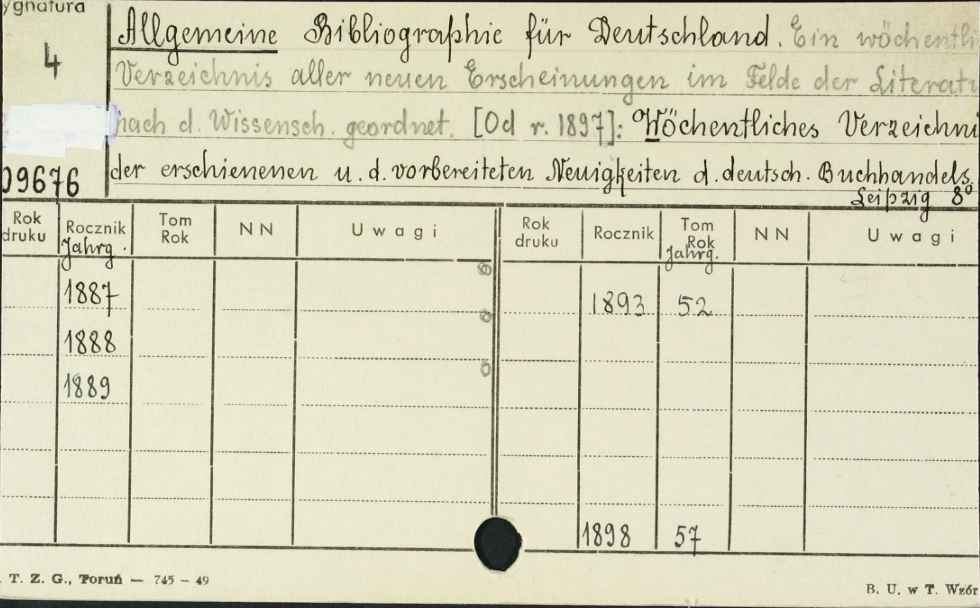 ygnatura
4
09676
Allgemeine Bibliographie für Deutschland. Ein wöchentli
Verzeichnis aller neuen Erscheinungen im Felde der Literatu
nach d. Wissensch. geordnet. [Od r. 1897]: Wöchentliches Verzeichni
der erschienenen u. d. vorbereiteten Neuigkeiten d. deutsch. Buchhandels.
Leipzig 8°
Rok druku Rocznik Jahrg. Tom Rok NN Uwagi Rok druku Rocznik Tom Rok Jahrg. NN Uwagi
1887 1893 52
1888
1889
1898 57
. T. Z. G., Toruń — 745 – 49 B. U. w T. Wzór